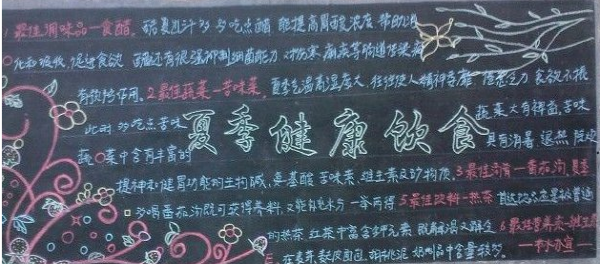 1最佳调味品—食醋。酷夏出汗多 多吃点醋,能提高胃酸浓度 帮助消
化和吸收,促进食欲 醋还有很强抑制细菌能力 对伤寒 痢疾等肠道传染病
有预防作用。2.最佳蔬菜—苦味菜。夏季气温高湿度大,往往使人精神萎靡 倦怠乏力 食欲不振
此时 多吃点苦味 蔬菜大有裨益,苦味
夏季健康饮食
蔬菜中含有丰富的 具有消暑 退热
提神和健胃功能的生物碱、氨基酸 苦味素、维生素及矿物质。3最佳汤肴—番茄汤,夏季
多喝番茄汤既可获得养料,又能补充水分 一举两得 5.最佳饮料—热茶
的热茶 红茶中富含钾元素 既解渴又解乏 6最佳营养素—维生素
E 在麦芽 麸皮面包 胡桃泥 奶制品中含量较多。